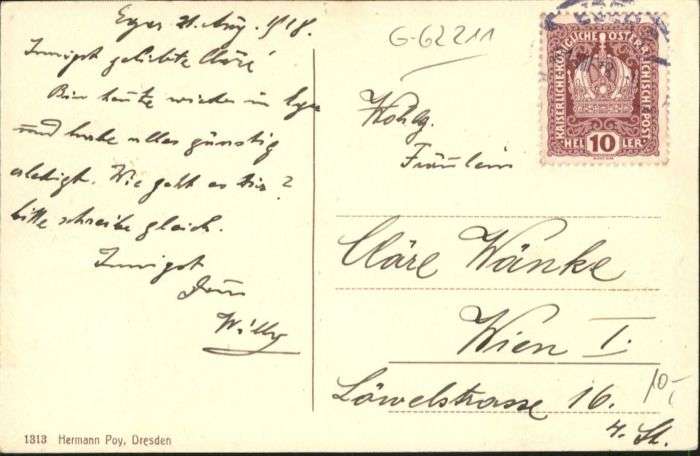 Eger 21. Aug. 1918.
Innigst geliebte Cläre!
Bin heute wieder in Eger
und habe alles günstig
erledigt. Wie geht es Dir?
bitte schreibe gleich.
Innigst
Dein
Willy
1313 Hermann Poy, Dresden
G-62211
KAISERLICHE KÖNIGLICHE ÖSTERREICHISCHE POST
HELLER 10
Wohlg.
Fräulein
Cläre Wänke
Wien I.
Löwelstrasse 16.
4. St.
10,-